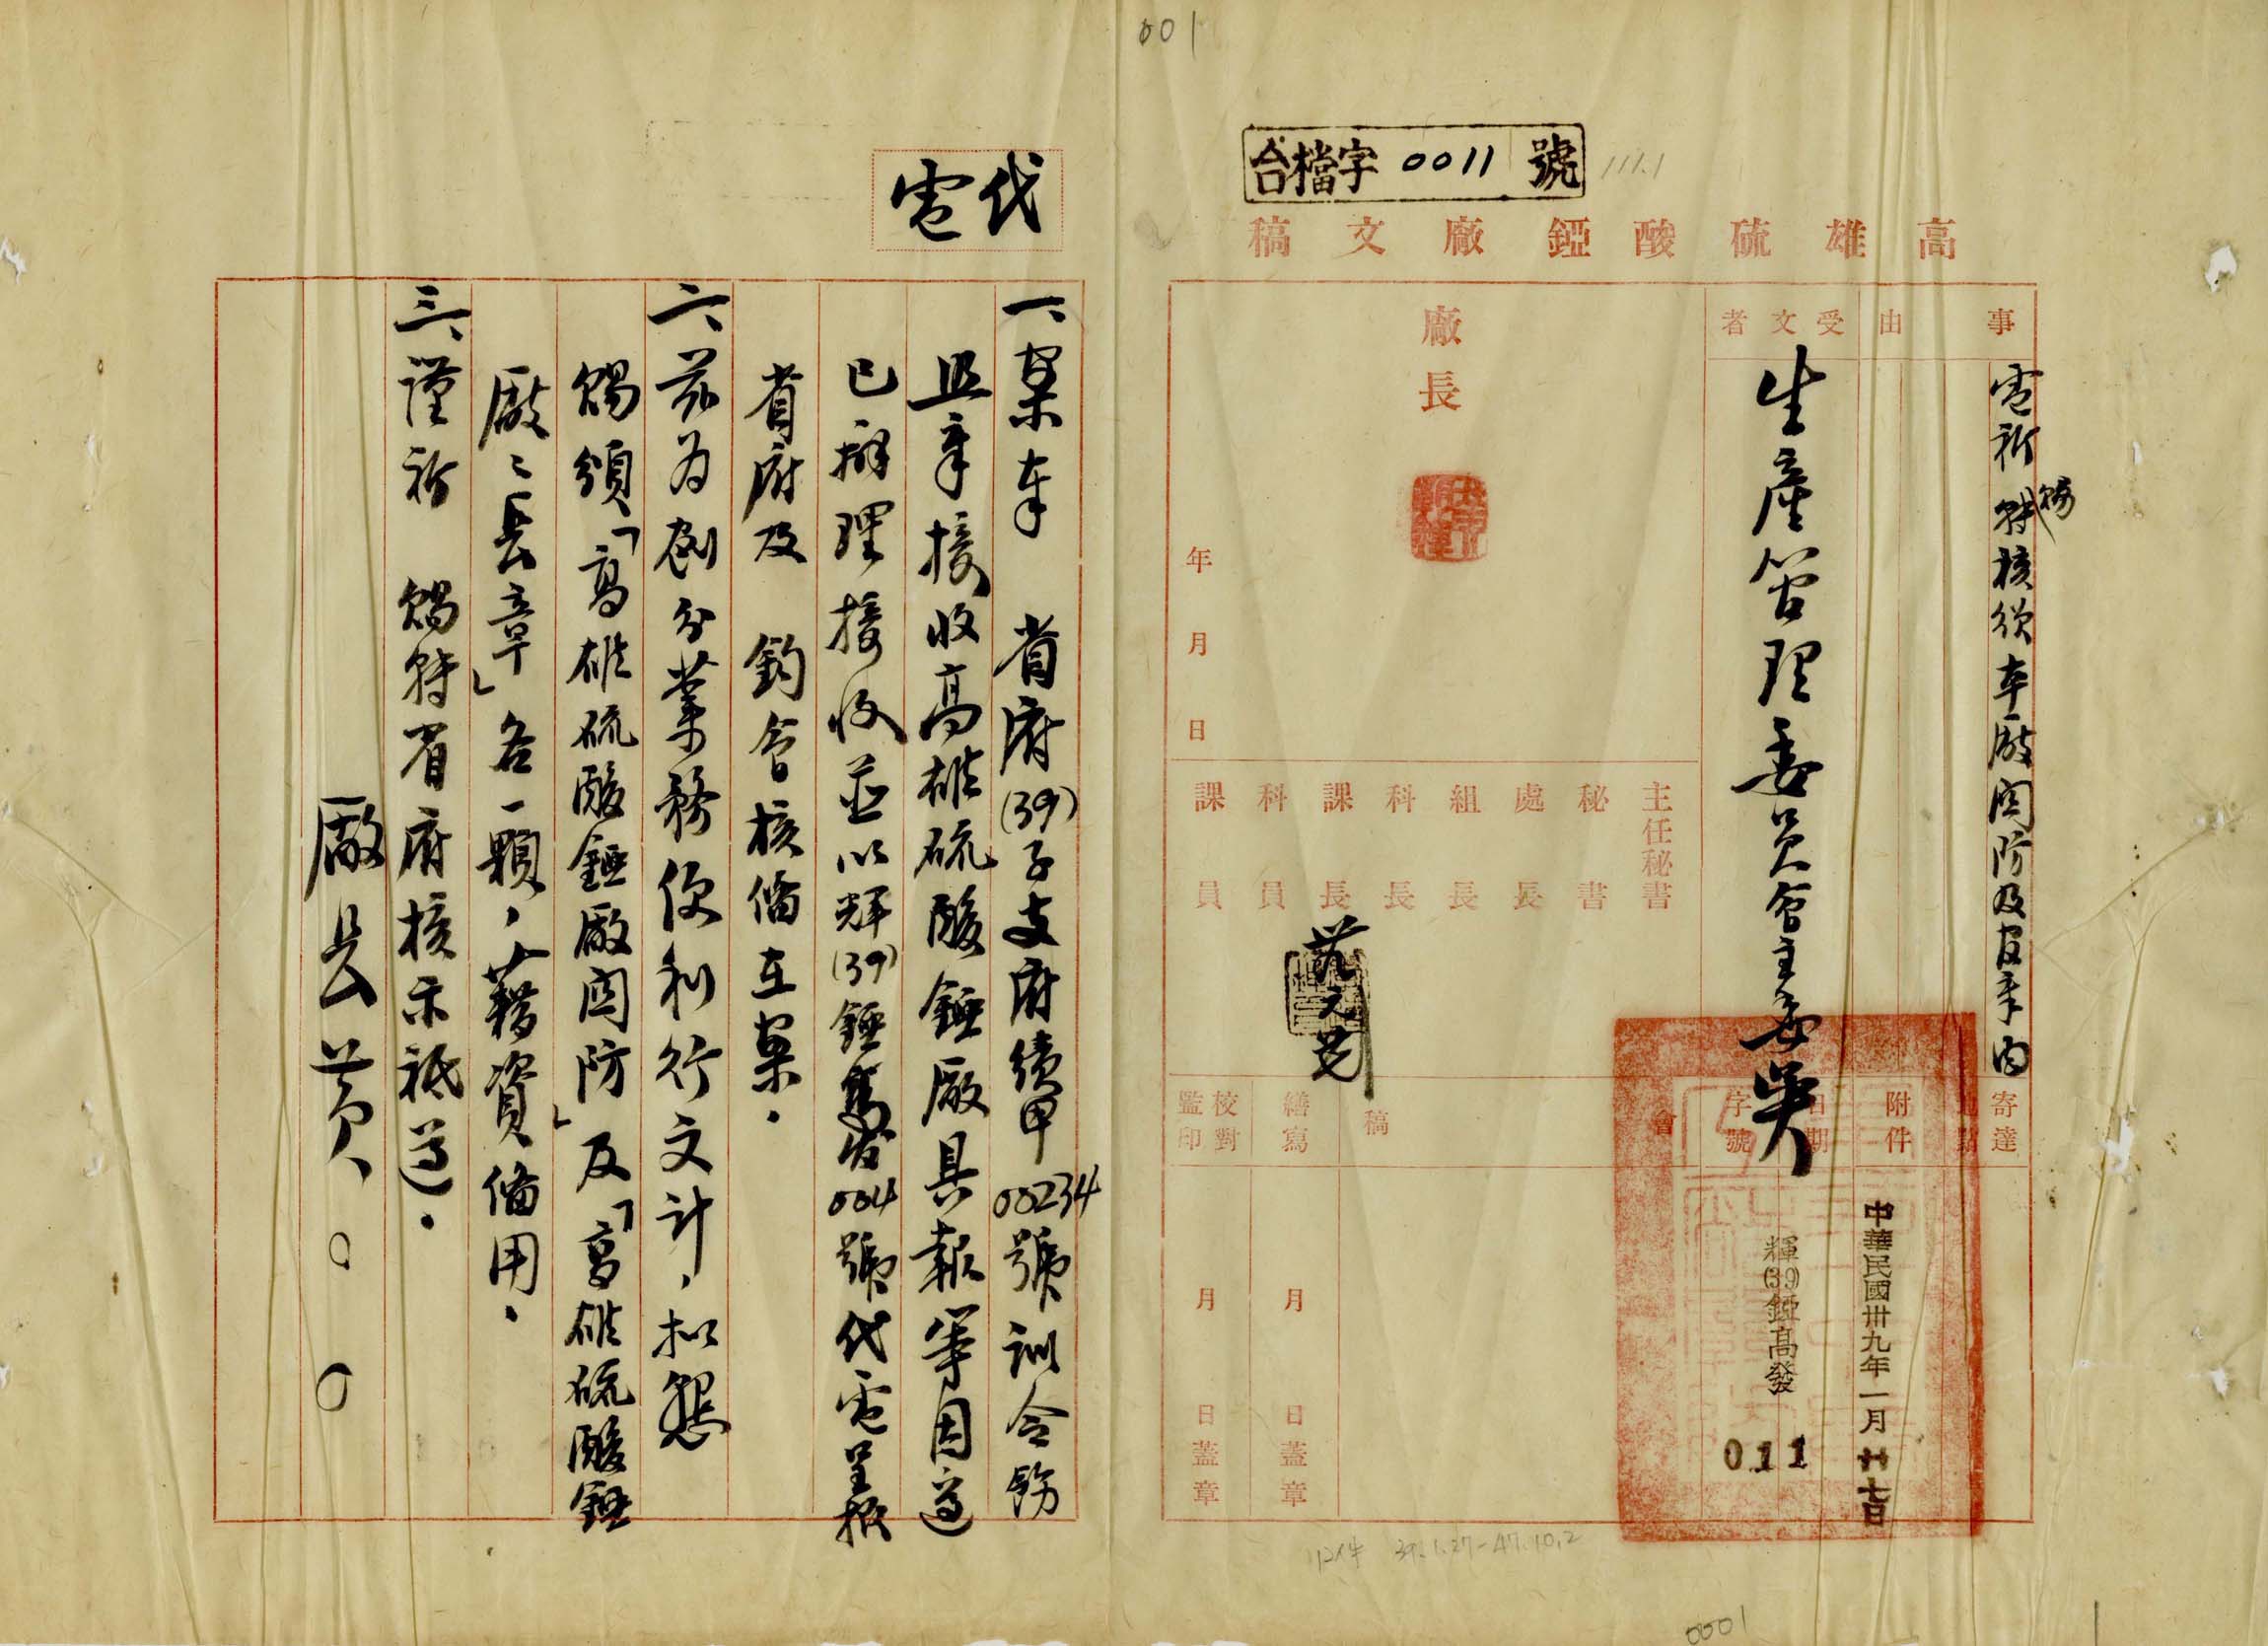 001
台檔字0011號
111.1
高雄硫酸錏廠文稿
事由
電祈賜轉核頒本廠關防及官章由
受文者
生產管理委員會主委吳
廠長
年月日
主任秘書
秘書
處長
組長
科長
課長
科員
課員
寄達地點
附件
日期
字號
會
稿
繕寫
校對
監印
中華民國卅九年一月廿七日
輝(39)錏高發
011
月日蓋章
月日蓋章
代電
一、案奉 省府(39)子支府績甲00234號訓令飭
迅率接收高雄硫酸錏廠具報等因遵
已辦理接收並以輝(39)錏高發004號代電呈報
省府及 鈞會核備在案．
二、茲為劃分業務便利行文計，擬懇
賜頒「高雄硫酸錏廠關防」及「高雄硫酸錏
廠ㄟ長章」各一顆，藉資備用．
三、謹祈 賜轉省府核示祗遵．
廠長黃○○
39.1.27-47.10.2
0001